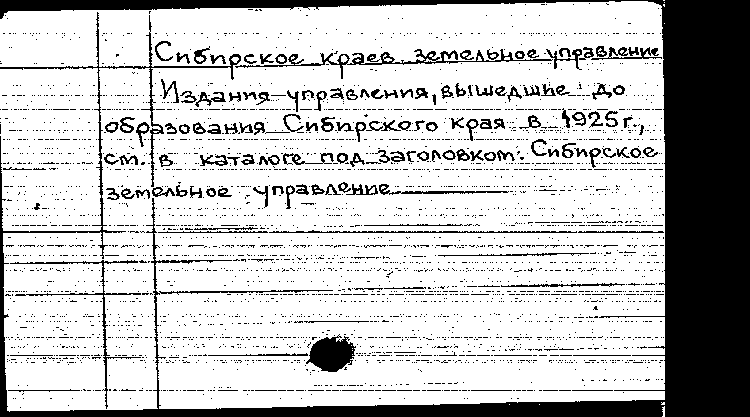 Сибирское краев. земельное управление
Издания управления, вышедшие до
образования Сибирского края в 1925 г.,
см. в каталоге под заголовком: Сибирское
земельное управление